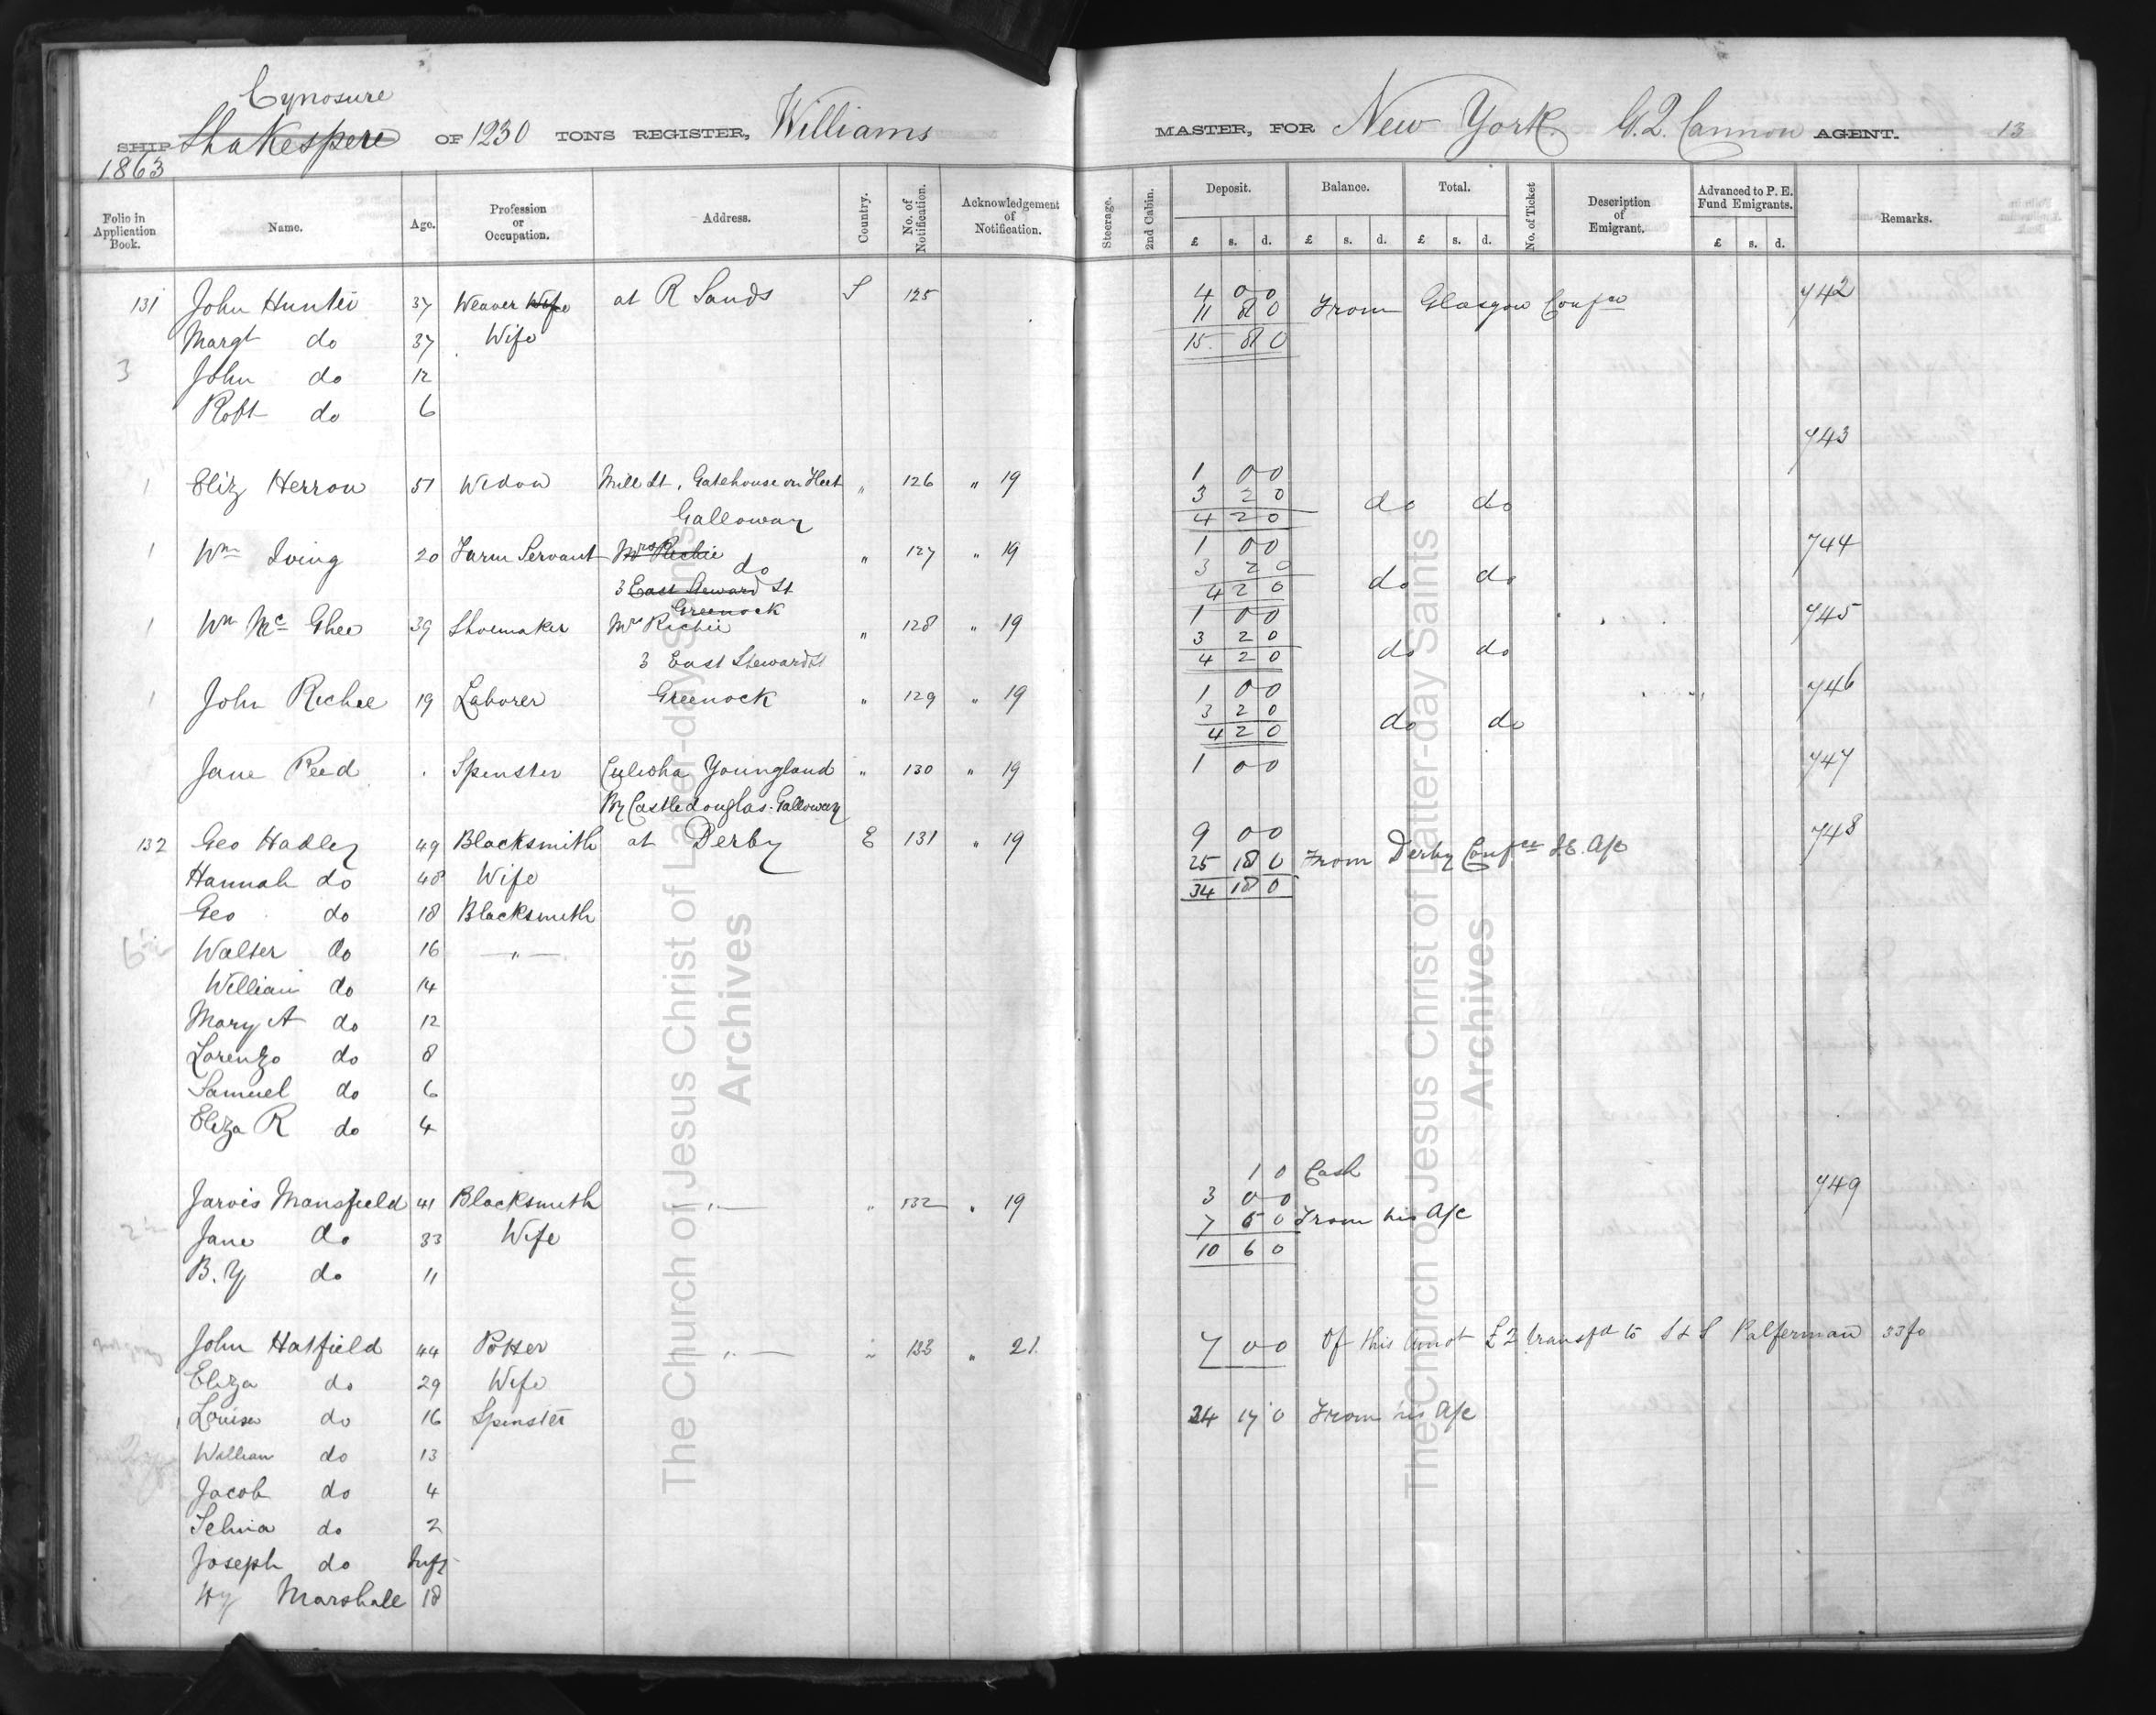 Cynosure
SHIP Shakespere OF 1230 TONS REGISTER, Williams MASTER, FOR New York. G. Q. Cannon AGENT. 13
1863
Folio in Application Book. Name. Age. Profession or Occupation. Address. Country. No. of Notification. Acknowledgement of Notification. Steerage. 2nd Cabin. Deposit. Balance. Total. No. of Ticket Description of Emigrant. Advanced to P. E. Fund Emigrants. Remarks.
£ s. d. £ s. d. £ s. d. £ s. d.
131 John Hunter 37 Weaver Wife at R Sands S 125 4 0 0 742
11 8 0 From Glasgow Confce
Margt do 37 Wife 15 8 0
3 John do 12
Robt do 6
743
1 Eliz Herron 51 Widow Mill St, Gatehouse on Fleet " 126 " 19 1 0 0
3 2 0 do do
Galloway 4 2 0
1 Wm Irving 20 Farm Servant Mrs Richie do " 127 " 19 1 0 0 744
3 2 0 do do
3 East Steward St 4 2 0
Greenock
1 Wm Mc Ghee 39 Shoemaker Mrs Richie " 128 " 19 1 0 0 745
3 2 0 do do
3 East Steward St 4 2 0
1 John Richie 19 Laborer Greenock " 129 " 19 1 0 0 746
3 2 0 do do
4 2 0
Jane Reed Spinster Youngland " 130 " 19 1 0 0 747
By Castledouglas. Galloway
132 Geo Hadley 49 Blacksmith at Derby E 131 " 19 9 0 0 748
25 18 0 From Derby Confce I.E. A/c
Hannah do 48 Wife 34 18 0
Geo do 18 Blacksmith
Walter do 16 — " —
William do 14
Mary A do 12
Lorenzo do 8
Samuel do 6
Eliza R do 4
1 0 Cash
Jarvis Mansfield 41 Blacksmith — " — " 132 " 19 3 0 0 749
7 5 0 From his A/c
Jane do 33 Wife 10 6 0
B. Y do 11
John Hatfield 44 Potter — " — " 133 " 21 7 0 0 Of this amot £2 transfd to S & S Palferman 33fo
Eliza do 29 Wife
Louisa do 16 Spinster 24 17 0 From his A/c
William do 13
Jacob do 4
Selina do 2
Joseph do Inft
Hy Marshall 18
The Church of Jesus Christ of Latter-day Saints
Archives
The Church of Jesus Christ of Latter-day Saints
Archives